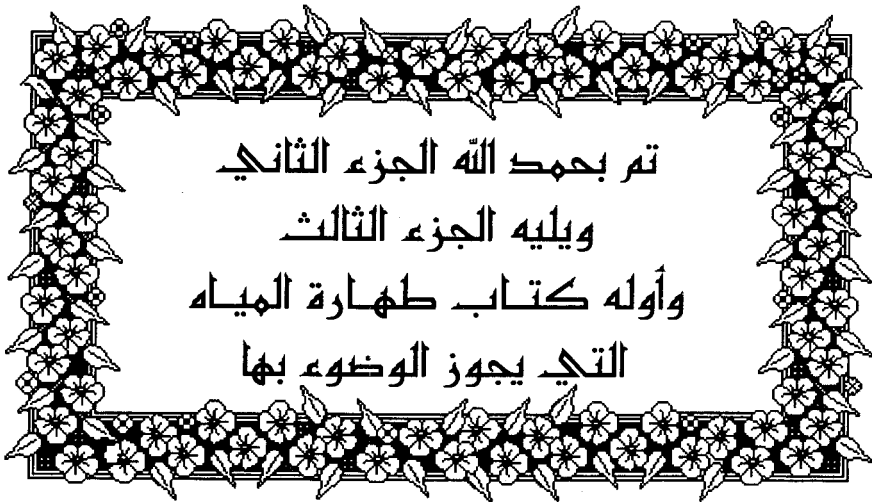 تم بحمد الله الجزء الثاني
ويليه الجزء الثالث
وأوله كتاب طهارة المياه
التي يجوز الوضوء بها